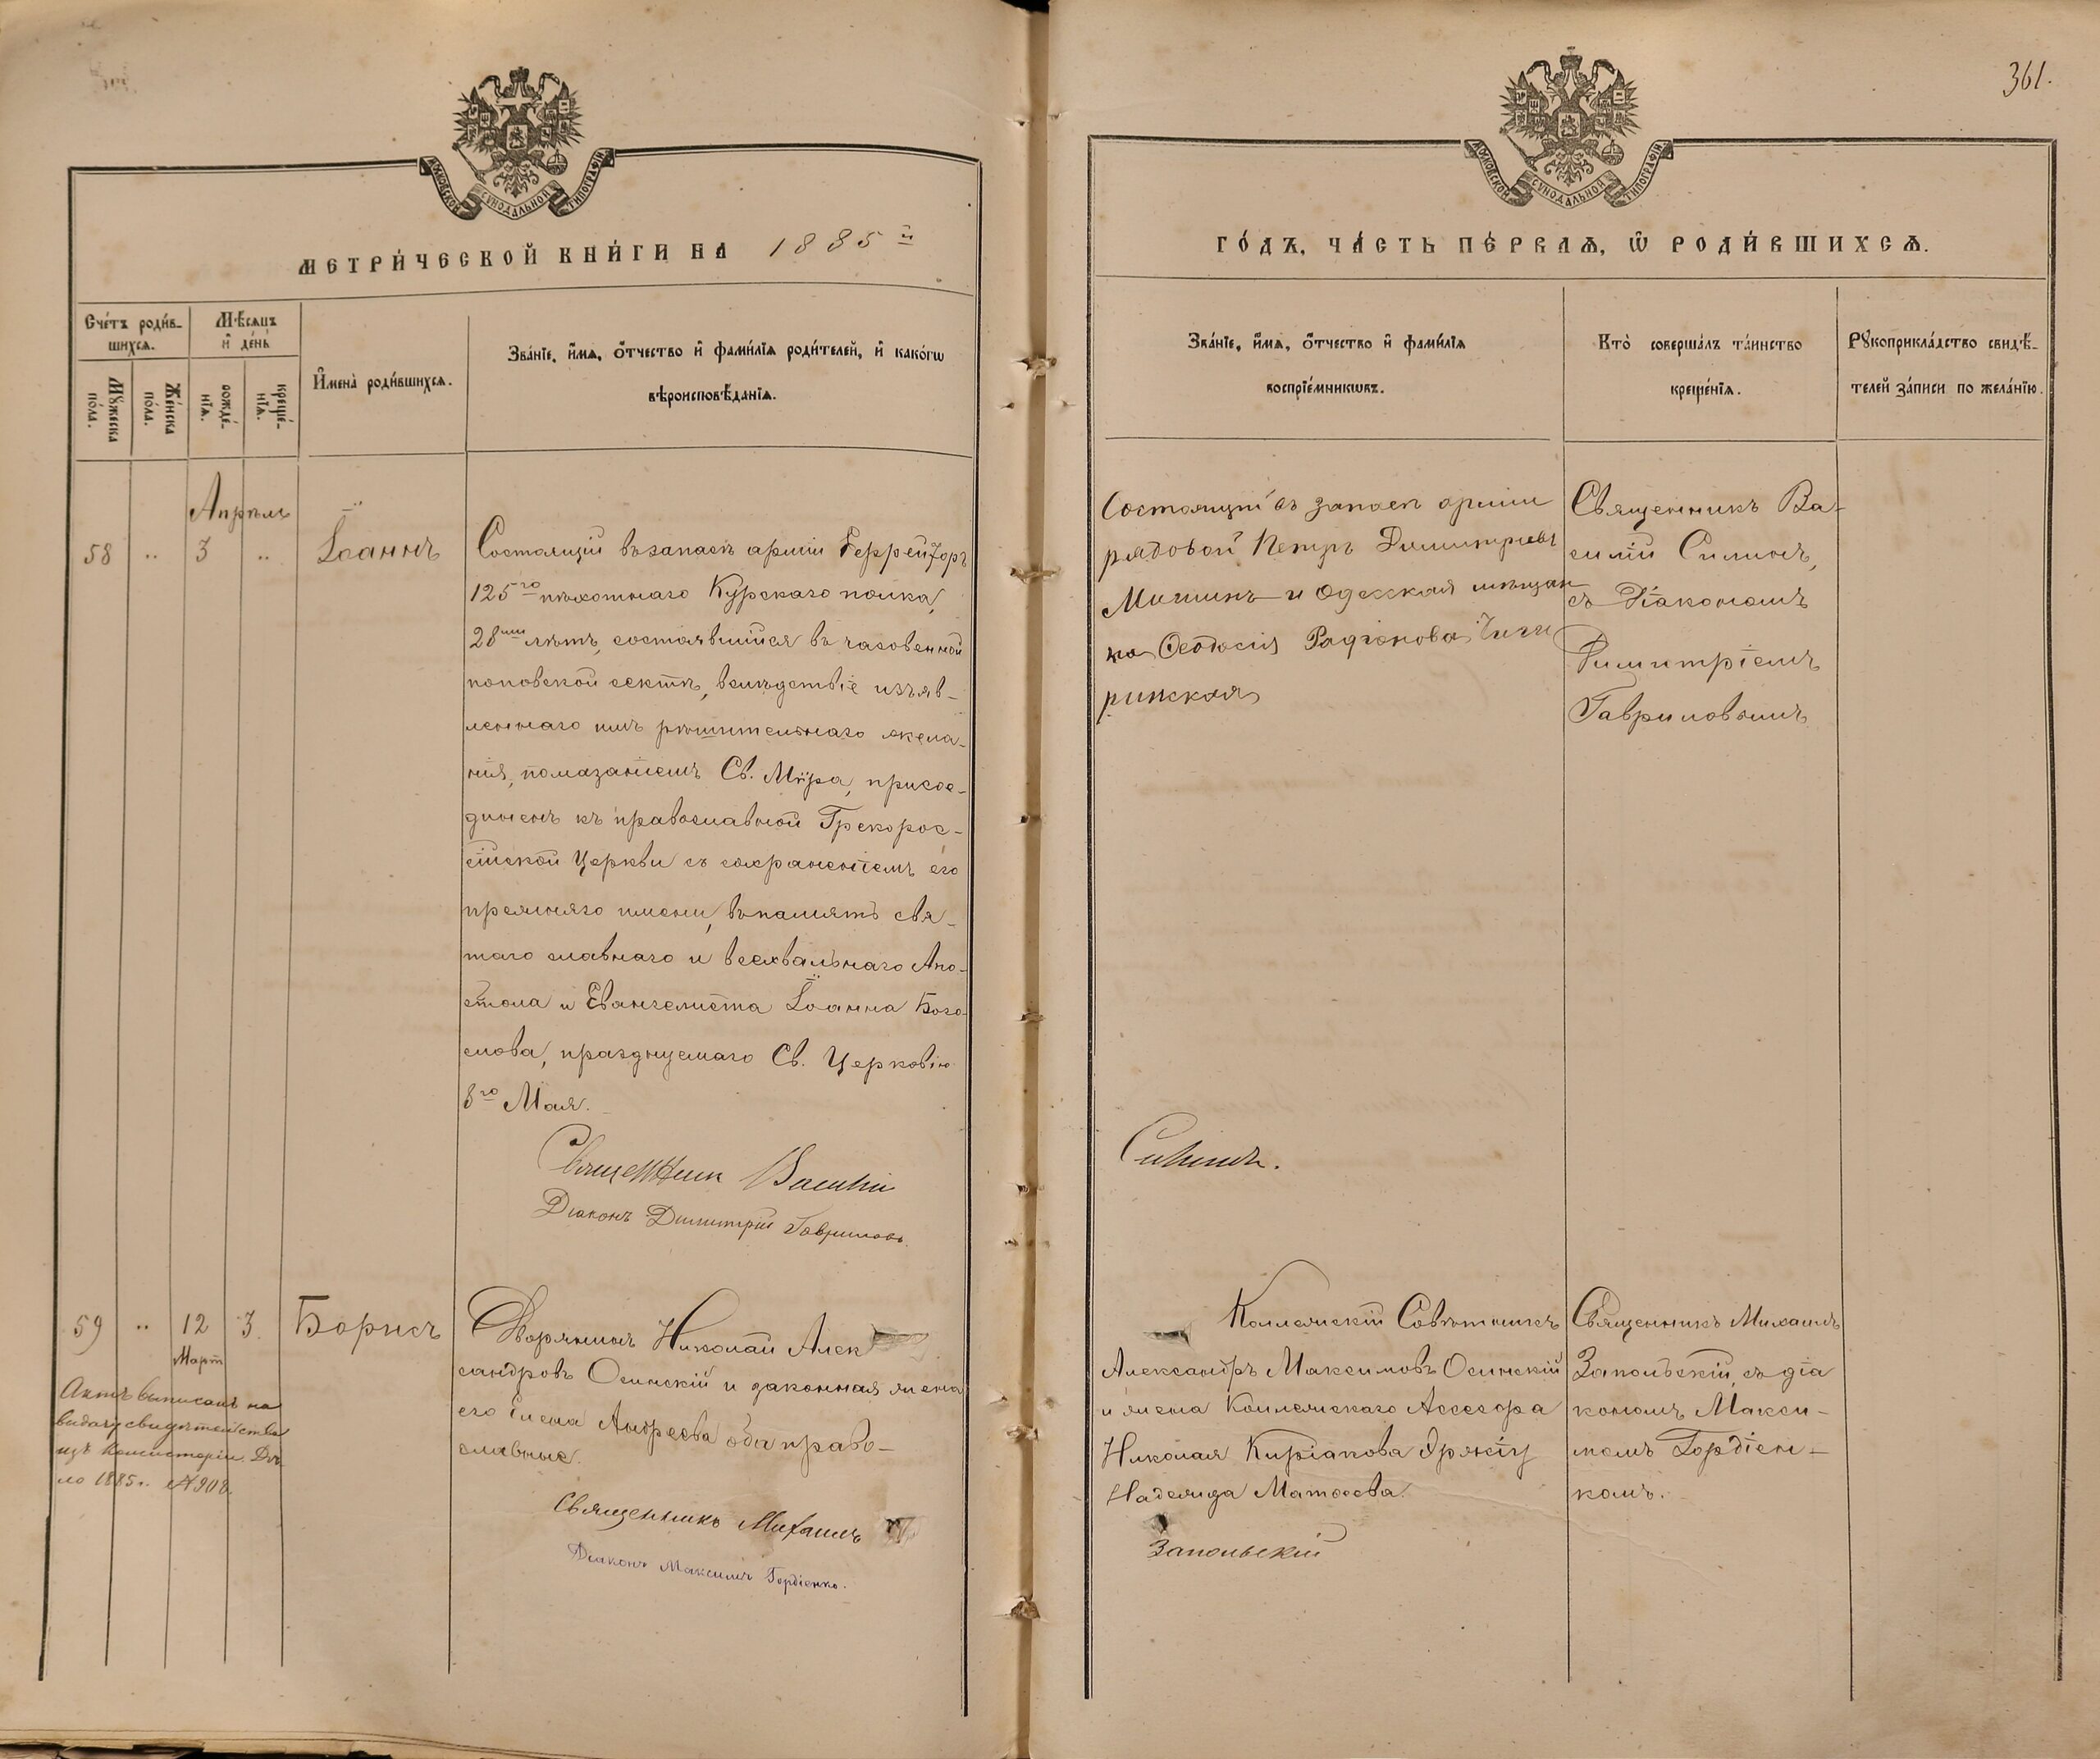 361.
МОСКОВСКОЙ СУНОДАЛЬНОЙ ТИПОГРАФІИ
МОСКОВСКОЙ СУНОДАЛЬНОЙ ТИПОГРАФІИ
МЕТРИ́ЧЕСКОЙ КНИ́ГИ НА 1885 й
ГО́ДЪ, ЧА́СТЬ ПЕ́РВАѦ, Ѿ РОДИ́ВШИХСѦ.
Сче́тъ роди́в-
шихсѧ.
Мѣ́сѧцъ
и҆ де́нь
Мꙋ́жеска
по́ла.
Же́нска
по́ла.
рожде́-
нїѧ.
креще́-
нїѧ.
И҆мена̀ роди́вшихсѧ.
Зва́нїе, и҆́мѧ, ѻ҆́тчество и҆ фами́лїѧ роди́телей, и҆ како́гѡ
вѣроисповѣ́данїѧ.
Зва́нїе, и҆́мѧ, ѻ҆́тчество и҆ фами́лїѧ
воспрїе́мникѡвъ.
Кто̀ соверша́лъ та́инство
креще́нїѧ.
Рꙋкоприкла́дство свидѣ́-
телей за́писи по жела́нїю.
Апрѣль
58 .. 3 .. Іоаннъ
Состоящій въ запасѣ арміи Геррейторъ
125го пѣхотнаго Курскаго полка,
28ми лѣтъ, состоявшійся въ часовенной
поповской сектѣ, вслѣдствіе изъяв-
леннаго имъ рѣшительнаго жела-
нія, помазаніемъ Св. Мѵра, присое-
диненъ къ православной Грекорос-
сійской Церкви съ сохраненіемъ его
прежняго имени, въ память свя-
таго славнаго и всехвальнаго Апо-
стола и Евангелиста Іоанна Бого-
слова, празднуемаго Св. Церковію
8го Мая.
Священникъ Василій
Діаконъ Димитрій Гавриловъ.
Состоящій въ запасѣ арміи
рядовой Петръ Димитріевъ
и Одесская мѣщан
ка Ѳеодосія Радіонова Чиги
ринская
Священникъ Ва-
силій Силинъ,
съ Діакономъ
Димитріемъ
Гавриловымъ
Силинъ.
59 .. 12 3. Борисъ
Мартъ
Актъ выписанъ на
выдачу свидѣтельства
изъ Консисторіи. Дѣ
ло 1885 г. №908.
Дворянинъ Николай Алек
сандровъ Осинскій и законная жена
его Елена Андреева оба право-
славные.
Священникъ Михаилъ
Діаконъ Максимъ Гордіенко.
Коллежскій Совѣтникъ
Александръ Максимовъ Осинскій
и жена Коллежскаго Ассесора
Николая Киріакова
Надежда Матѳеева.
Запольскій
Священникъ Михаилъ
Запольскій, съ діа
кономъ Макси-
момъ Гордіен-
комъ.